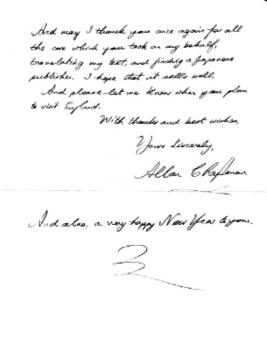 And may I thank you once again for all
the care which you took on my behalf,
translating my text, and finding a Japanese
publisher. I hope that it sells well.
And please let me know when you plan
to visit England.
With thanks and best wishes,
Yours Sincerely,
Allan Chapman
And also, a very happy New Year to you.